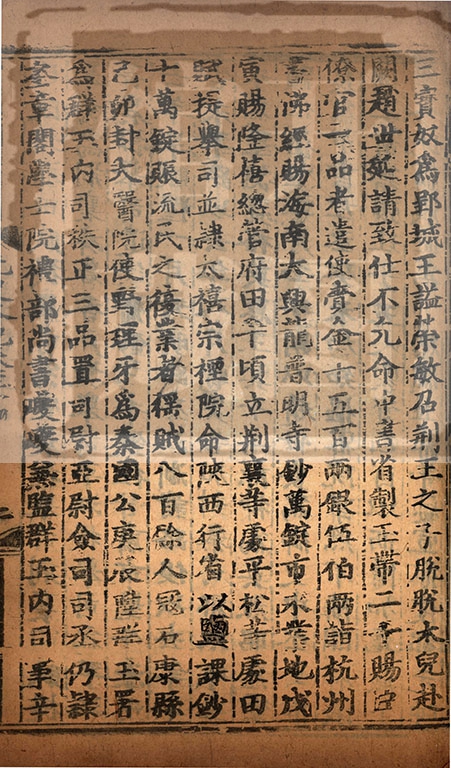 三寶奴為郢城王謚榮敏召荆王之子脫脫木兒赴
闕趙世延請致仕不允命中書省製玉帶二十賜臣
僚官一品者遣使賫金千五百兩銀伍伯兩詣杭州
書沸經賜海南大興龍普明寺鈔萬錠市永業地戊
寅賜隆禧總管府田千頃立荆襄等處平松等處田
賦提舉司並隷太禧宗禋院命陜西行省以鹽課鈔
十萬錠賑流民之復業者徭賊八百餘人冦石康縣
己卯封太醫院使野理牙為秦國公庚辰陞群玉署
為群玉內司秩正三品置司尉亞尉僉司司丞仍隷
奎章閣學士院禮部尚書巙巙兼監群玉內司事辛